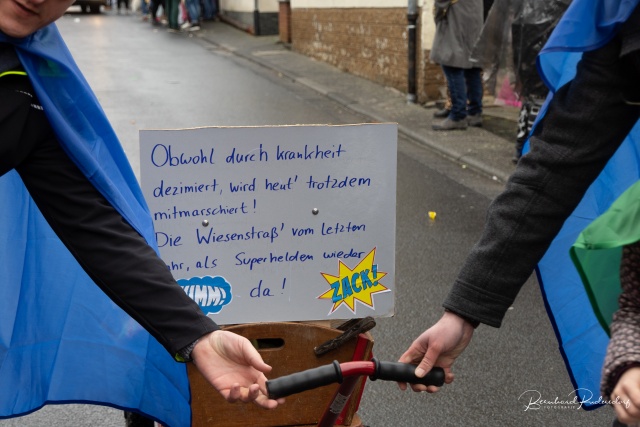 Obwohl durch krankheit
dezimiert, wird heut' trotzdem
mitmarschiert!
Die Wiesenstraß' vom letzten
Jahr, als Superhelden wieder
da!
ZACK!
Bernhard Rudendorf
FOTOGRAFIE